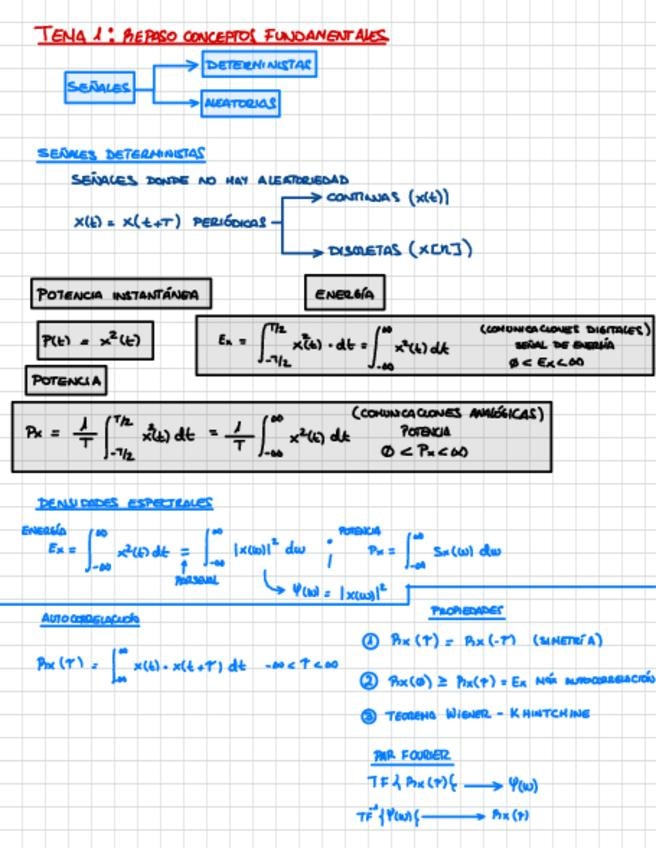 TEMA 1: REPASO CONCEPTOS FUNDAMENTALES
SEÑALES
DETERMINISTAS
ALEATORIAS
SEÑALES DETERMINISTAS
SEÑALES DONDE NO HAY ALEATORIEDAD
x(t) = x(t+T) PERIÓDICAS
CONTINUAS (x(t))
DISCRETAS (x[n])
POTENCIA INSTANTÁNEA
P(t) = x²(t)
ENERGÍA
Ex = ∫_{-T/2}^{T/2} x²(t)·dt = ∫_{-∞}^{∞} x²(t) dt
(COMUNICACIONES DIGITALES)
SEÑAL DE ENERGÍA
0 < Ex < ∞
POTENCIA
Px = 1/T ∫_{-T/2}^{T/2} x²(t) dt = 1/T ∫_{-∞}^{∞} x²(t) dt
(COMUNICACIONES ANALÓGICAS)
POTENCIA
0 < Px < ∞
DENSIDADES ESPECTRALES
ENERGÍA
Ex = ∫_{-∞}^{∞} x²(t) dt = ∫_{-∞}^{∞} |x(ω)|² dω ;
PARSEVAL
Ψ(ω) = |x(ω)|²
POTENCIA
Px = ∫_{-∞}^{∞} Sx(ω) dω
AUTOCORRELACIÓN
Rx(τ) = ∫_{-∞}^{∞} x(t)·x(t+τ) dt -∞ < τ < ∞
PROPIEDADES
① Rx(τ) = Rx(-τ) (SIMETRÍA)
② Rx(0) ≥ Rx(τ) = Ex MÁX AUTOCORRELACIÓN
③ TEOREMA WIENER - KHINTCHINE
PAR FOURIER
TF{Rx(τ)} → Ψ(ω)
TF⁻¹{Ψ(ω)} → Rx(τ)